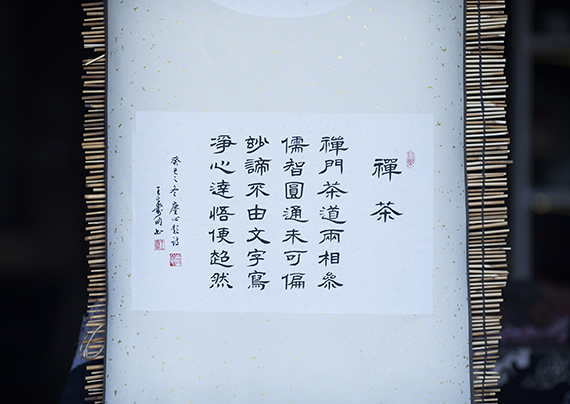 禪茶
禪門茶道兩相參
儒智圓通未可偏
妙諦不由文字寫
淨心達悟便超然
癸巳冬塵心題詩